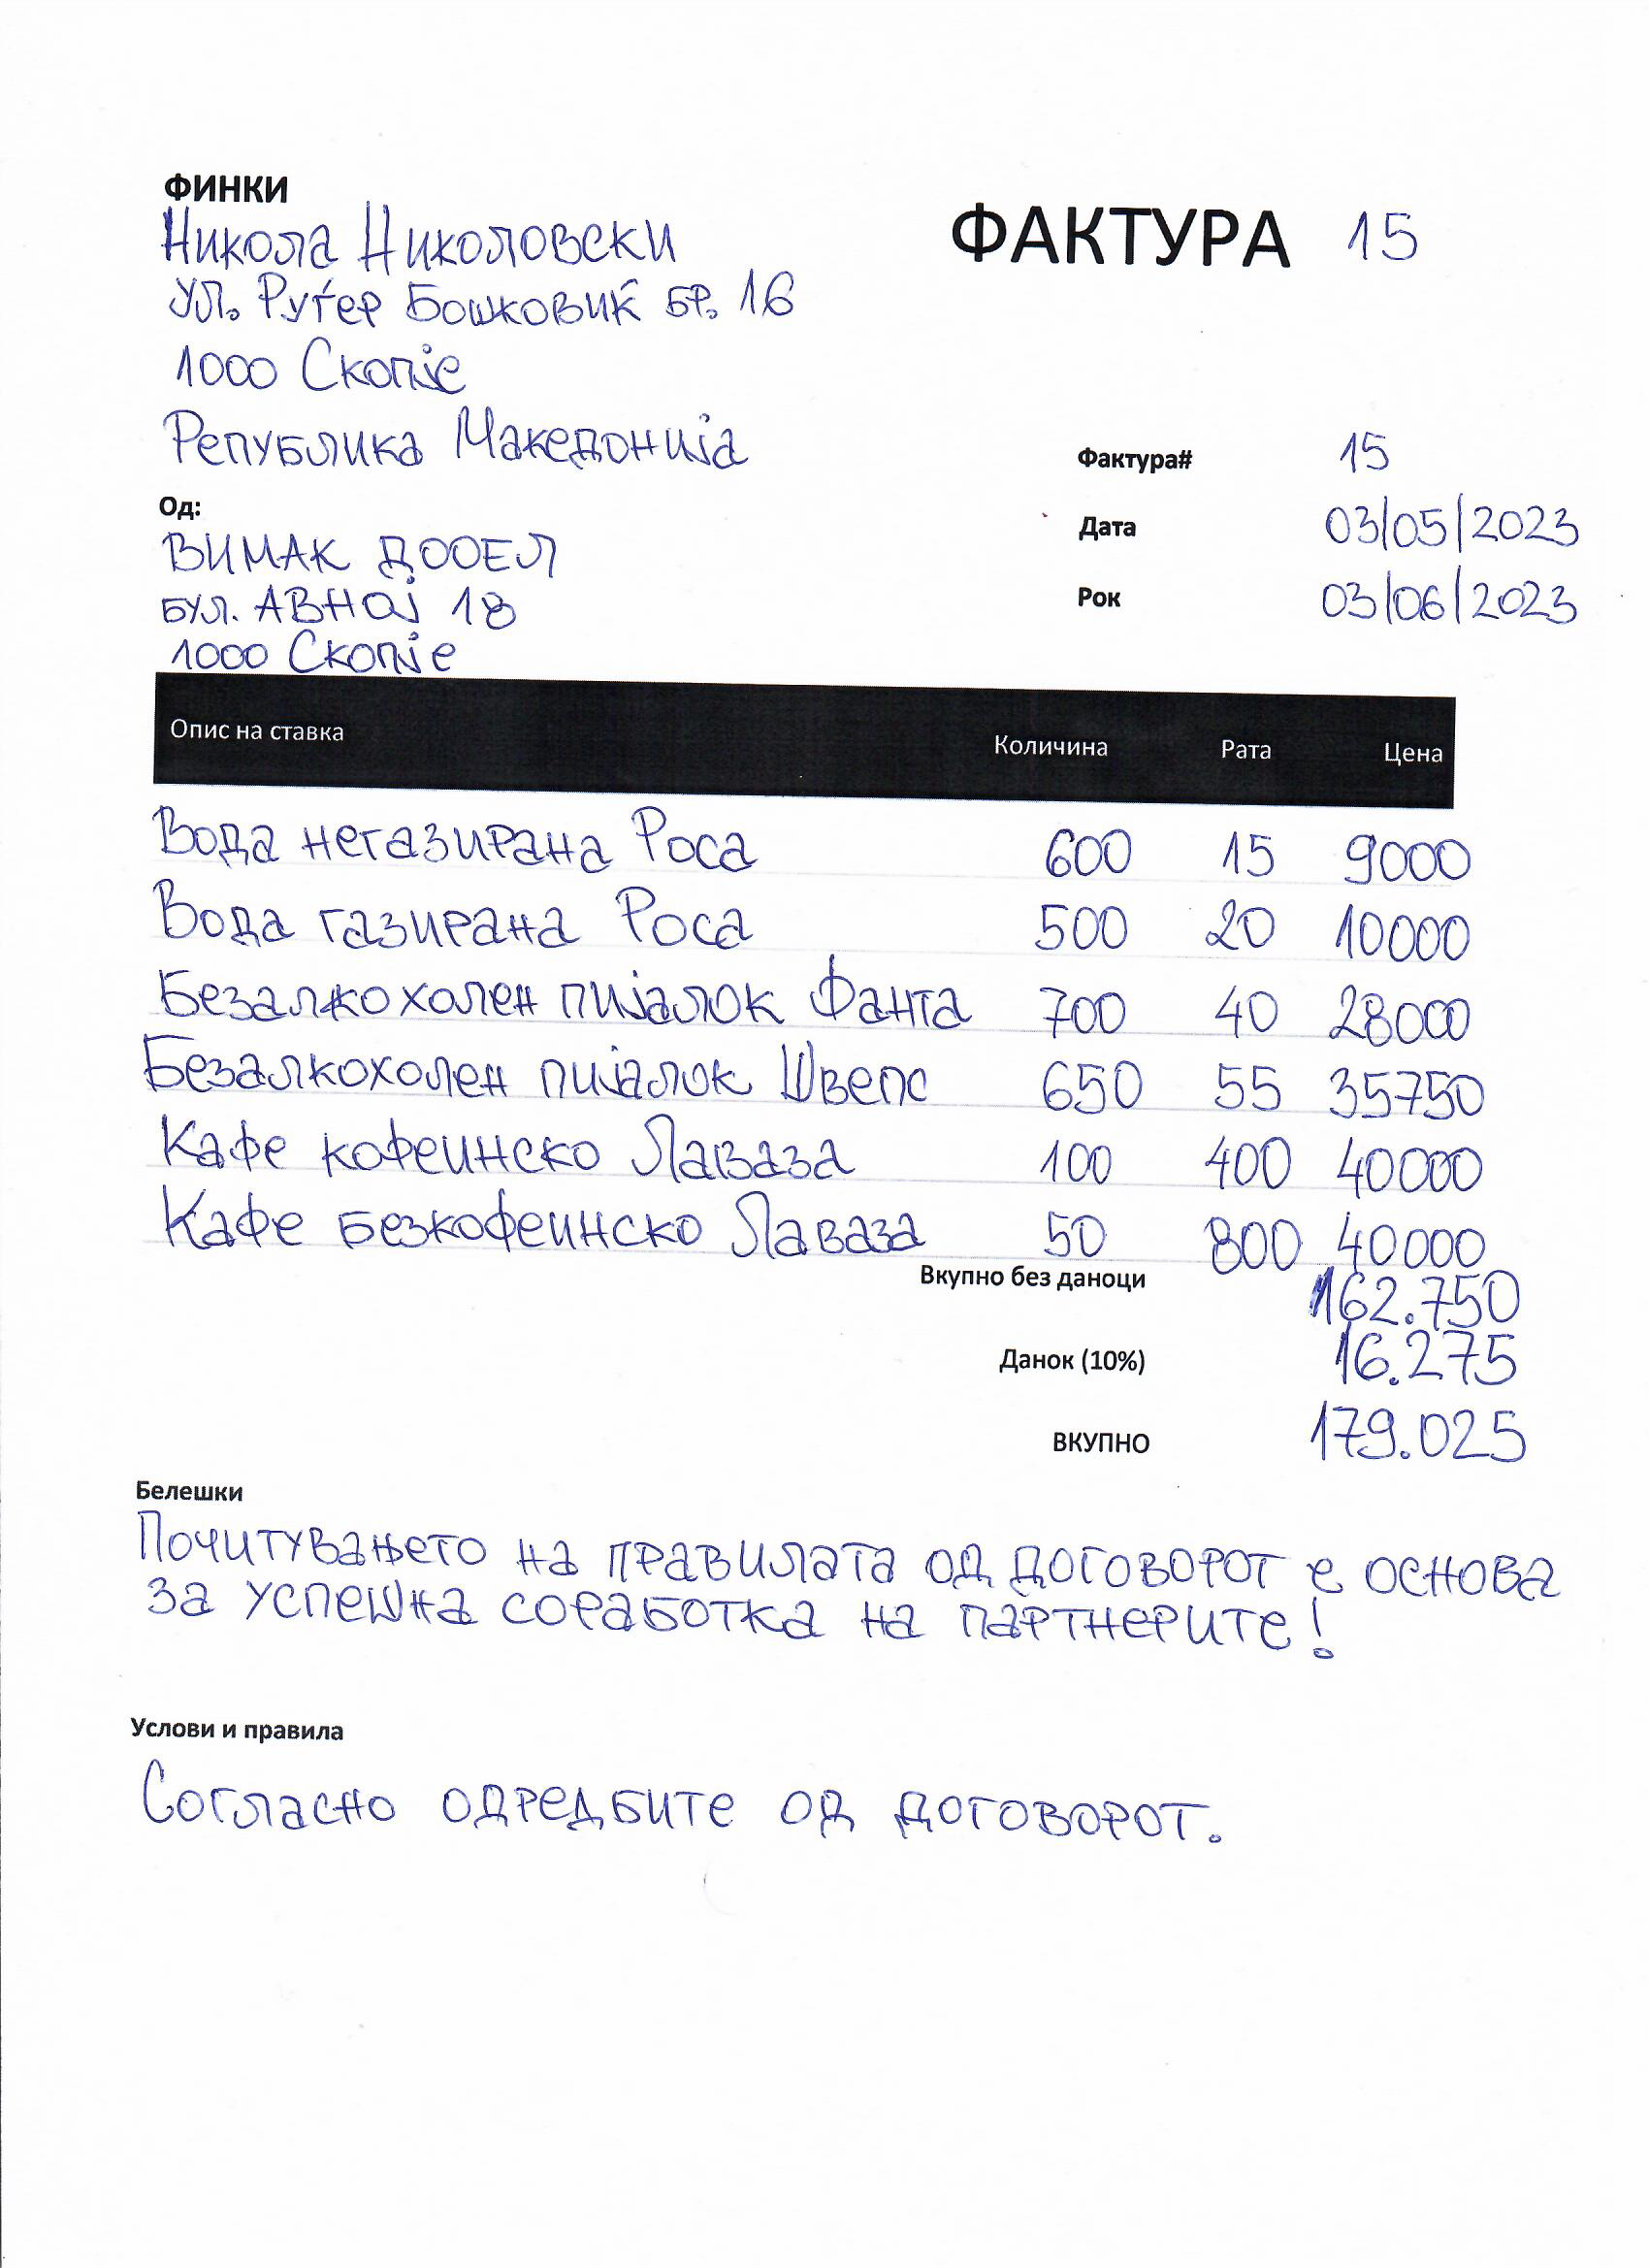 ФИНКИ
Никола Николовски
ФАКТУРА 15
ул. Руѓер Бошковиќ бр. 16
1000 Скопје
Република Македонија
Фактура# 15
Од:
Дата 03/05/2023
ВИМАК ДООЕЛ
Рок 03/06/2023
бул. АВНОЈ 18
1000 Скопје
Опис на ставка Количина Рата Цена
Вода негазирана Роса 600 15 9000
Вода газирана Роса 500 20 10000
Безалкохолен пијалок Фанта 700 40 28000
Безалкохолен пијалок Швепс 650 55 35750
Кафе кофеинско Лаваза 100 400 40000
Кафе безкофеинско Лаваза 50 800 40000
Вкупно без даноци 162.750
Данок (10%) 16.275
ВКУПНО 179.025
Белешки
Почитувањето на правилата од договорот е основа
за успешна соработка на партнерите!
Услови и правила
Согласно одредбите од договорот.